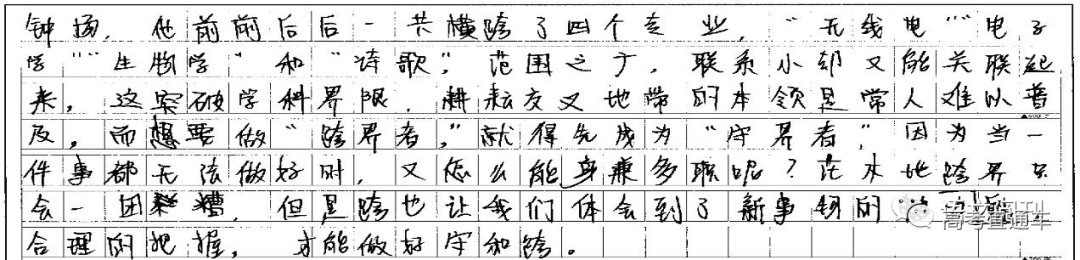 钟扬，他前前后后一共横跨了四个专业，“无线电”“电子
学”“生物学”和“诗歌”，范围之广，联系小却又能关联起
来，这突破学科界限，耕耘交叉地带的本领是常人难以普
及，而想要做“跨界者”，就得先成为“守界者”，因为当一
件事都无法做好时，又怎么能身兼多职呢？茫木地跨界只
会一团糟，但是跨也让我们体会到了新事物的
合理的把握，才能做好守和跨。
高考直通车